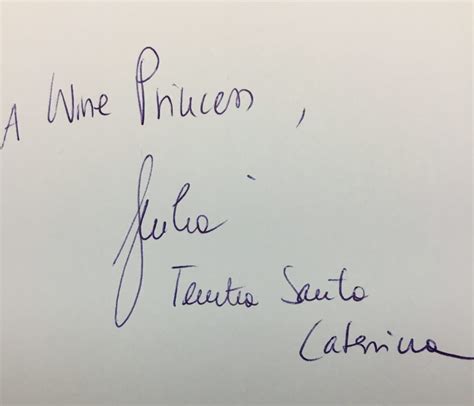 A Wine Princess,
Giulia
Tenuta Santa
Caterina